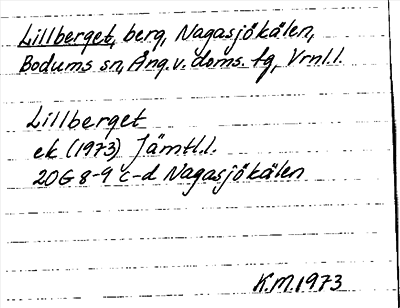 Lillberget, berg, Nagasjökälen,
Bodums sn, Ång. v. doms. fg, Vrnl.l.
Lillberget
ek (1973) Jämtl.l.
20G 8-9 c-d Nagasjökälen
K.M.1973